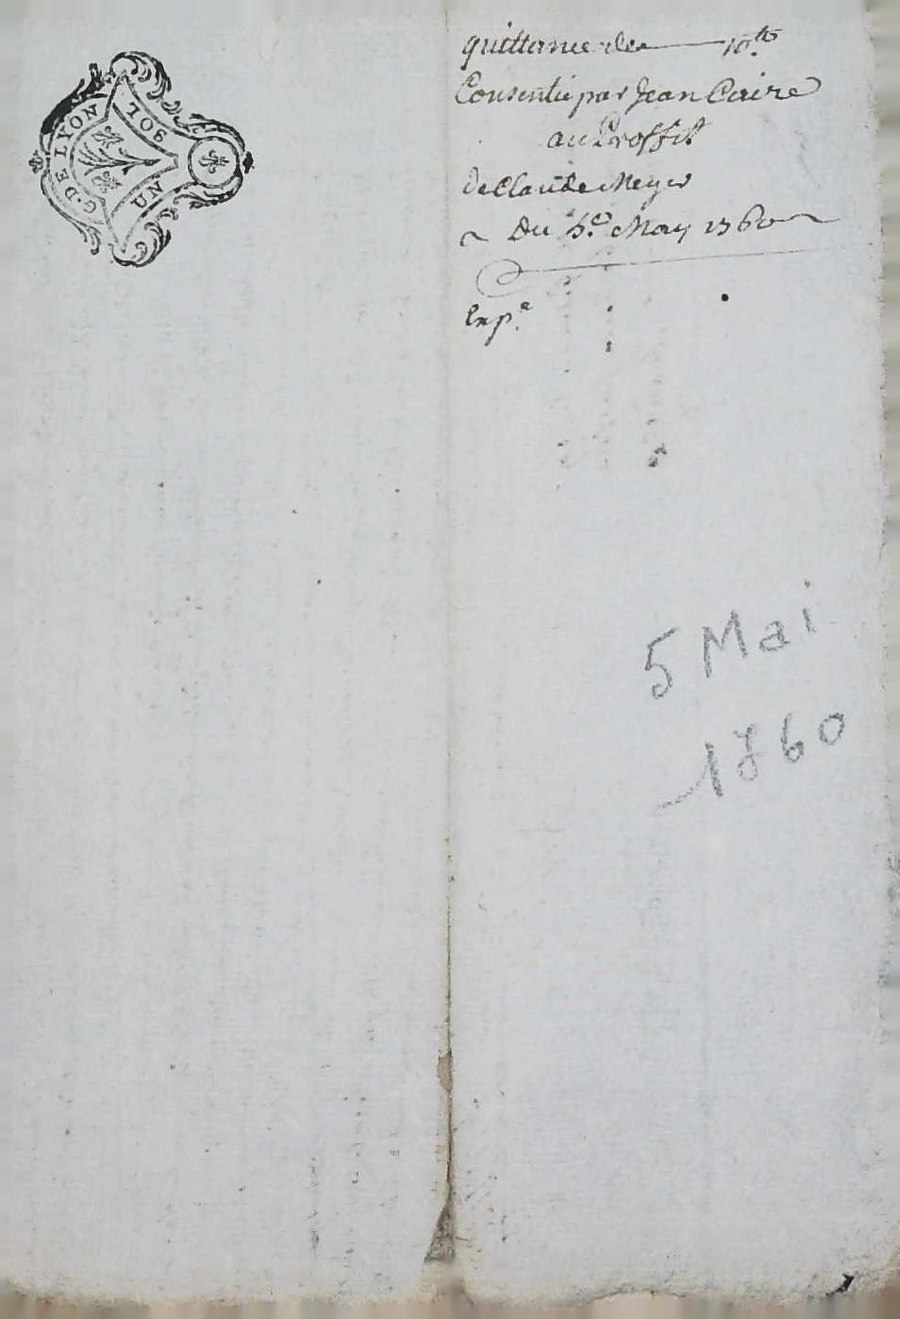 G. DE LYON
UN SOL
quittance de 10.lt
Consentie par Jean Caire
au Proffit
de Claude Meyer
Du 5.e May 1760
Exp.e
5 Mai
1760